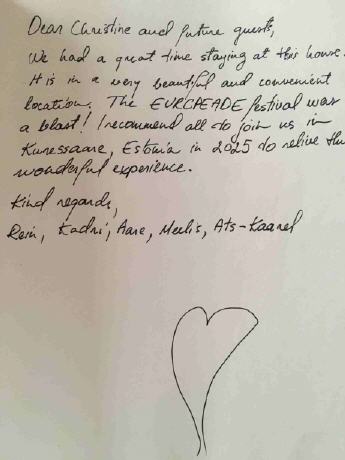 Dear Christine and future guests,
We had a great time staying at this house.
It is in a very beautiful and convenient
location. The EUROPEADE festival was
a blast! I recommend all to join us in
Kuressaare, Estonia in 2025 to relive the
wonderful experience.
Kind regards,
Rein, Kadri, Aare, Meelis, Ats-Kaarel